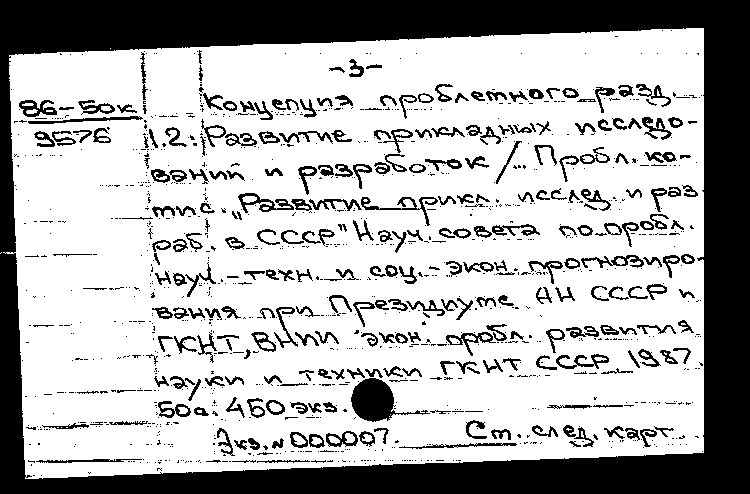 -3-
86-50к Концепция проблемного разд.
9576 1.2: Развитие прикладных исследо-
ваний и разработок /... Пробл. ко-
мис. „Развитие прикл. исслед. и раз
раб. в СССР" Науч. совета по пробл.
науч.-техн. и соц.-экон. прогнозиро-
вания при Президиуме АН СССР и
ГКНТ, ВНИИ экон. пробл. развития
науки и техники ГКНТ СССР 1987.
50а. 450 экз.
Экз. N 000007. См. след. карт.